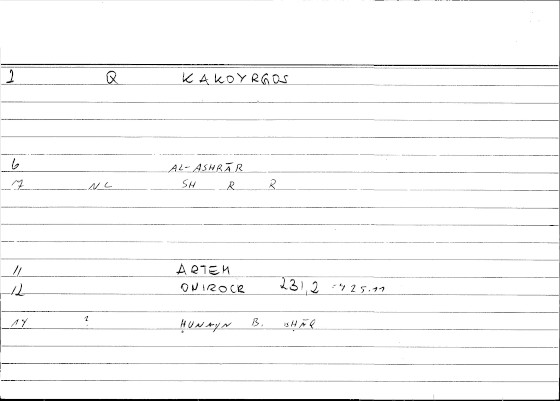 1 Q KAKOYRGOS
6 AL-ASHRĀR
7 NL SH R R
11 ARTEM
12 ONIROCR 231,2
14 ? ḤUNAYN B.